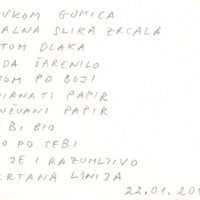 VKOM GUMICA
ALNA SLIKA ZRCALA
TOM DLAKA
DA ŠARENILO
OM PO BOJI
IRNATI PAPIR
NŽVANI PAPIR
BI BIO
O PO SEBI
JE I RAZUMLJIVO
CRTANA LINIJA
22.01.201